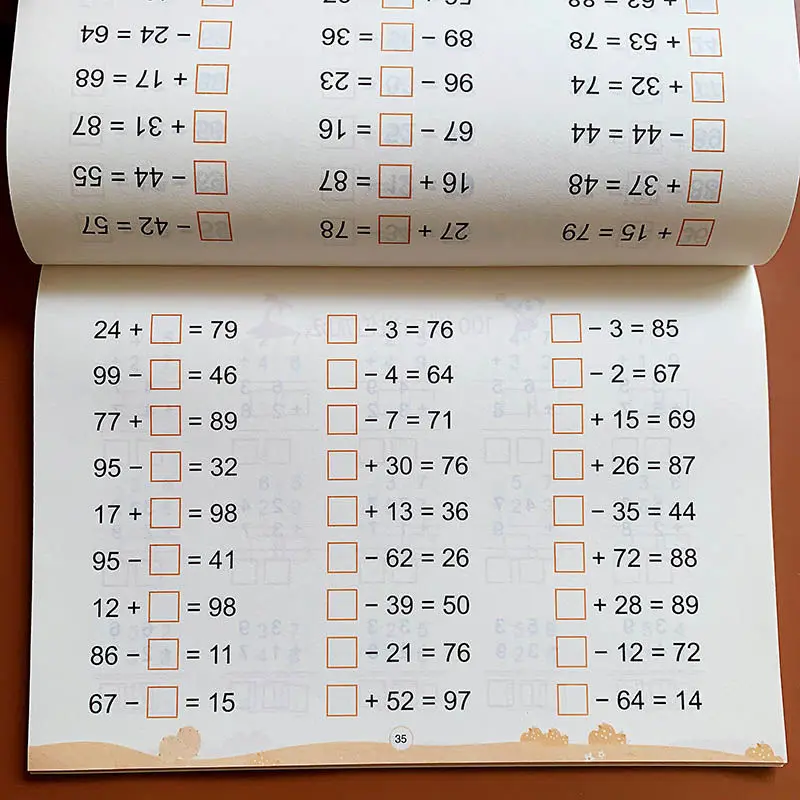 □ + 15 = 79 27 + □ = 78 □ − 42 = 57
□ + 37 = 48 16 + □ = 87 □ − 44 = 55
□ − 44 = 44 67 − □ = 16 □ + 31 = 87
□ + 32 = 74 96 − □ = 23 □ + 17 = 68
□ + 53 = 78 89 − □ = 36 □ − 24 = 64
24 + □ = 79 □ − 3 = 76 □ − 3 = 85
99 − □ = 46 □ − 4 = 64 □ − 2 = 67
77 + □ = 89 □ − 7 = 71 □ + 15 = 69
95 − □ = 32 □ + 30 = 76 □ + 26 = 87
17 + □ = 98 □ + 13 = 36 □ − 35 = 44
95 − □ = 41 □ − 62 = 26 □ + 72 = 88
12 + □ = 98 □ − 39 = 50 □ + 28 = 89
86 − □ = 11 □ − 21 = 76 □ − 12 = 72
67 − □ = 15 □ + 52 = 97 □ − 64 = 14
35